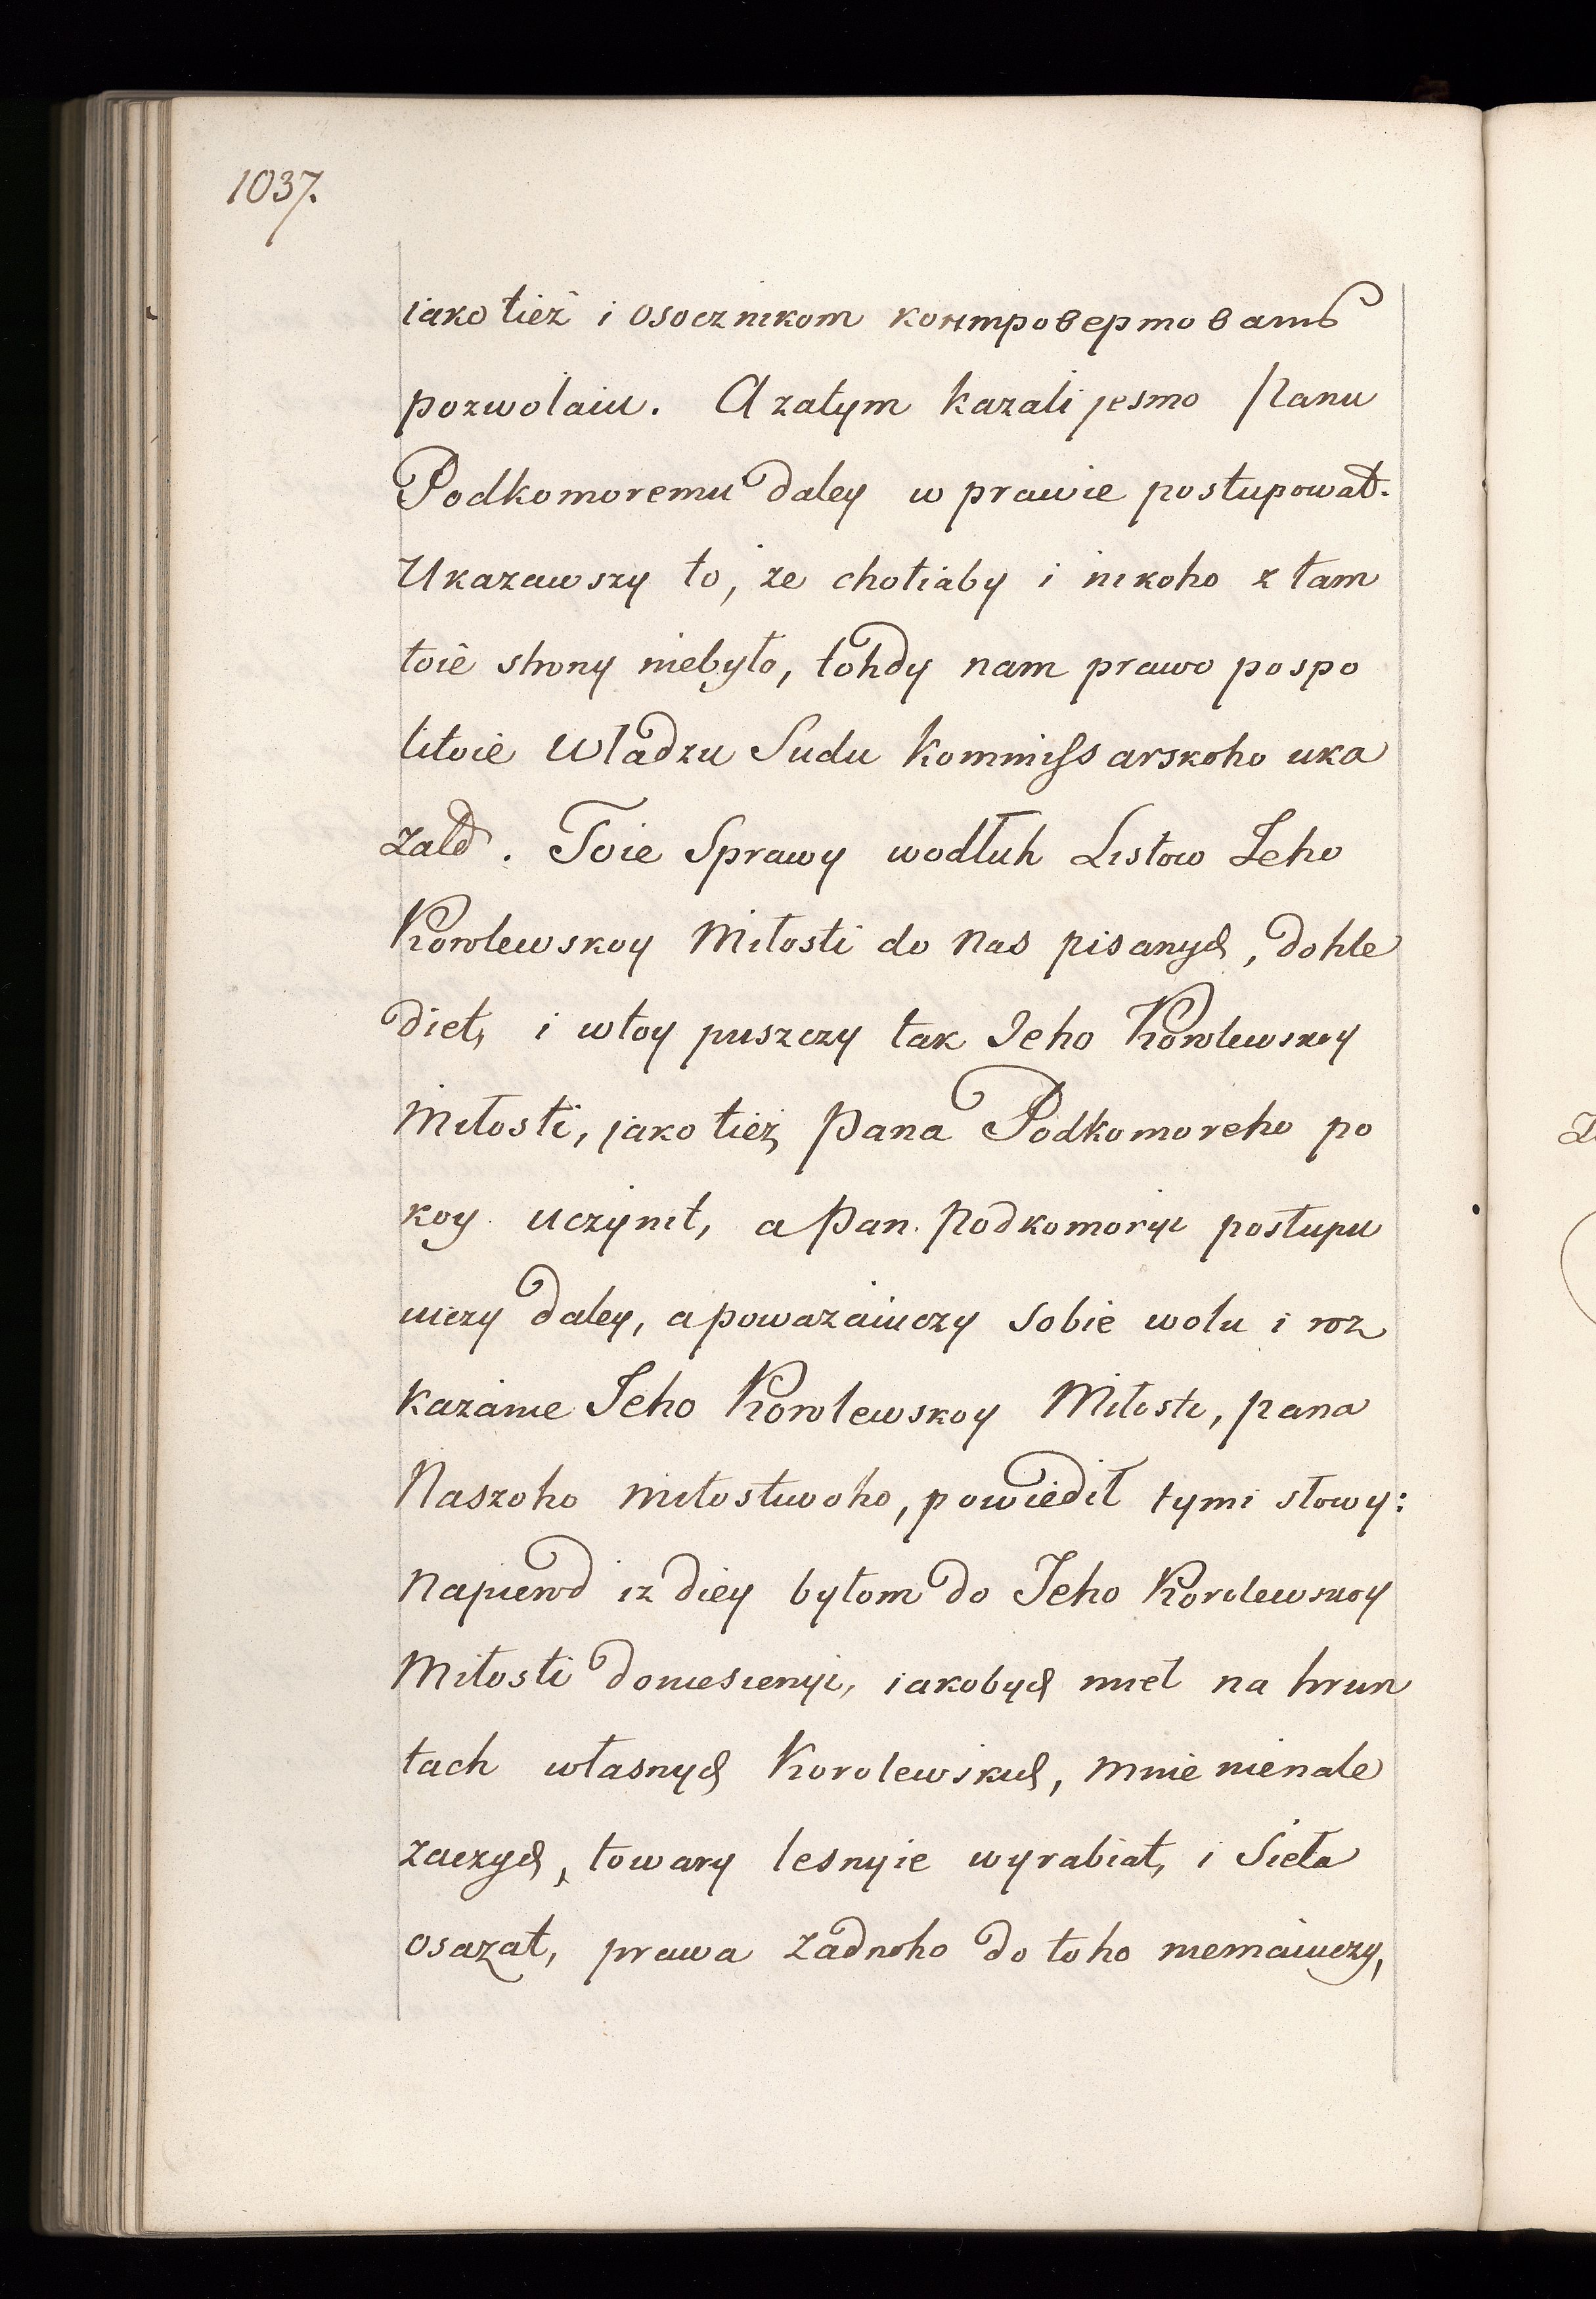 1037.
iako tież i osocznikom контровертовать
pozwolaiu. A zatym kazali jesmo Panu
Podkomoremu daley w prawie postupowat.
Ukazawszy to, że chotiaby i nikoho z tam
toiê strony niebyło, tohdy nam prawo pospo
litoiė Wladzu Sudu Kommissarskoho uka
zało. Toie Sprawy wodłuh Listow Jeho
Korolewskoy Miłosti do Nas pisanych, dohle
diet, i wtoy puszczy tak Jeho Korolewskoy
Miłosti, jako tież Pana Podkomoreho po
koy uczynit, a Pan Podkomoryi postupu
iuczy daley, a poważaiuczy sobie wolu i roz
kazanie Jeho Korolewskoy Miłosti, pana
Naszoho miłostiwoho, powiedił tymi słowy:
Napierod iz diey byłom do Jeho Korolewskoy
Miłosti doniesienyi, iakobych mieł na hrun
tach własnych Korolewskich, mnie nienale
żaczych, towary lesnyie wyrabiat, i Sieła
osażat, prawa żadnoho do toho niemaiuczy,